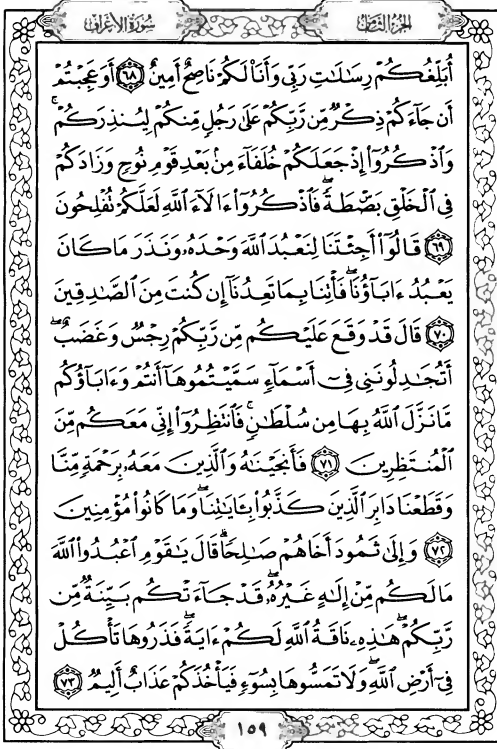 سورة الأعراف
الجزء الثامن
أُبَلِّغُكُمْ رِسَالَاتِ رَبِّي وَأَنَا۠ لَكُمْ نَاصِحٌ أَمِينٌ ٦٨ أَوَعَجِبْتُمْ
أَن جَاءَكُمْ ذِكْرٌ مِّن رَّبِّكُمْ عَلَىٰ رَجُلٍ مِّنكُمْ لِيُنذِرَكُمْ ۚ
وَاذْكُرُوا إِذْ جَعَلَكُمْ خُلَفَاءَ مِنْ بَعْدِ قَوْمِ نُوحٍ وَزَادَكُمْ
فِي الْخَلْقِ بَصْۜطَةً ۖ فَاذْكُرُوا ءَالَاءَ اللَّهِ لَعَلَّكُمْ تُفْلِحُونَ
٦٩ قَالُوا أَجِئْتَنَا لِنَعْبُدَ اللَّهَ وَحْدَهُۥ وَنَذَرَ مَا كَانَ
يَعْبُدُ ءَابَاؤُنَا ۖ فَأْتِنَا بِمَا تَعِدُنَا إِن كُنتَ مِنَ الصَّادِقِينَ
٧٠ قَالَ قَدْ وَقَعَ عَلَيْكُم مِّن رَّبِّكُمْ رِجْسٌ وَغَضَبٌ ۖ
أَتُجَادِلُونَنِي فِي أَسْمَاءٍ سَمَّيْتُمُوهَا أَنتُمْ وَءَابَاؤُكُم
مَّا نَزَّلَ اللَّهُ بِهَا مِن سُلْطَانٍ ۚ فَانتَظِرُوا إِنِّي مَعَكُم مِّنَ
الْمُنتَظِرِينَ ٧١ فَأَنجَيْنَاهُ وَالَّذِينَ مَعَهُۥ بِرَحْمَةٍ مِّنَّا
وَقَطَعْنَا دَابِرَ الَّذِينَ كَذَّبُوا بِـَٔايَاتِنَا ۖ وَمَا كَانُوا مُؤْمِنِينَ
٧٢ وَإِلَىٰ ثَمُودَ أَخَاهُمْ صَالِحًا ۗ قَالَ يَاقَوْمِ اعْبُدُوا اللَّهَ
مَا لَكُم مِّنْ إِلَٰهٍ غَيْرُهُۥ ۖ قَدْ جَاءَتْكُم بَيِّنَةٌ مِّن
رَّبِّكُمْ ۖ هَٰذِهِۦ نَاقَةُ اللَّهِ لَكُمْ ءَايَةً ۖ فَذَرُوهَا تَأْكُلْ
فِي أَرْضِ اللَّهِ ۖ وَلَا تَمَسُّوهَا بِسُوءٍ فَيَأْخُذَكُمْ عَذَابٌ أَلِيمٌ ٧٣
١٥٩